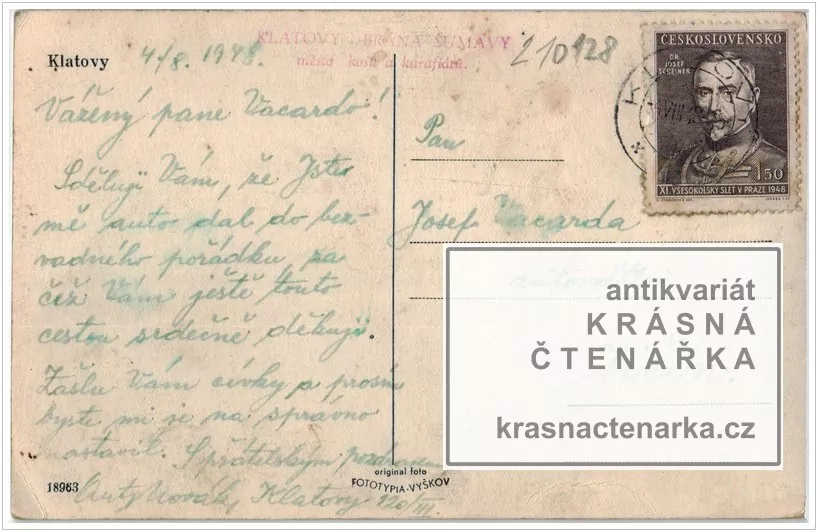 Klatovy 4/8. 1948.
KLATOVY - BRÁNA ŠUMAVY
město květů a karafiátů.
210128
Vážený pane Vacardo!
Sděluji Vám, že Jste
mě auto dal do bez-
vadného pořádku, za
čež Vám ještě touto
cestou srdečně děkuji.
Zašlu Vám cívky a prosím
byste mi je na správno
nastavil. S přátelským pozdravem
Ant. Novák, Klatovy 120/III.
18963
original foto
FOTOTYPIA-VYŠKOV
ČESKOSLOVENSKO
DR. JOSEF SCHEINER
1.50
XI. VŠESOKOLSKÝ SLET V PRAZE 1948
Pan
Josef Vacarda
antikvariát
KRÁSNÁ
ČTENÁŘKA
krasnactenarka.cz